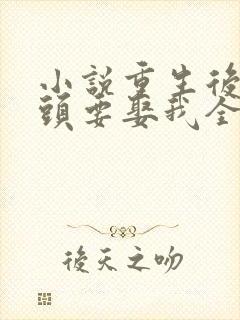 小說重生後
頭要娶我全
後天之吻